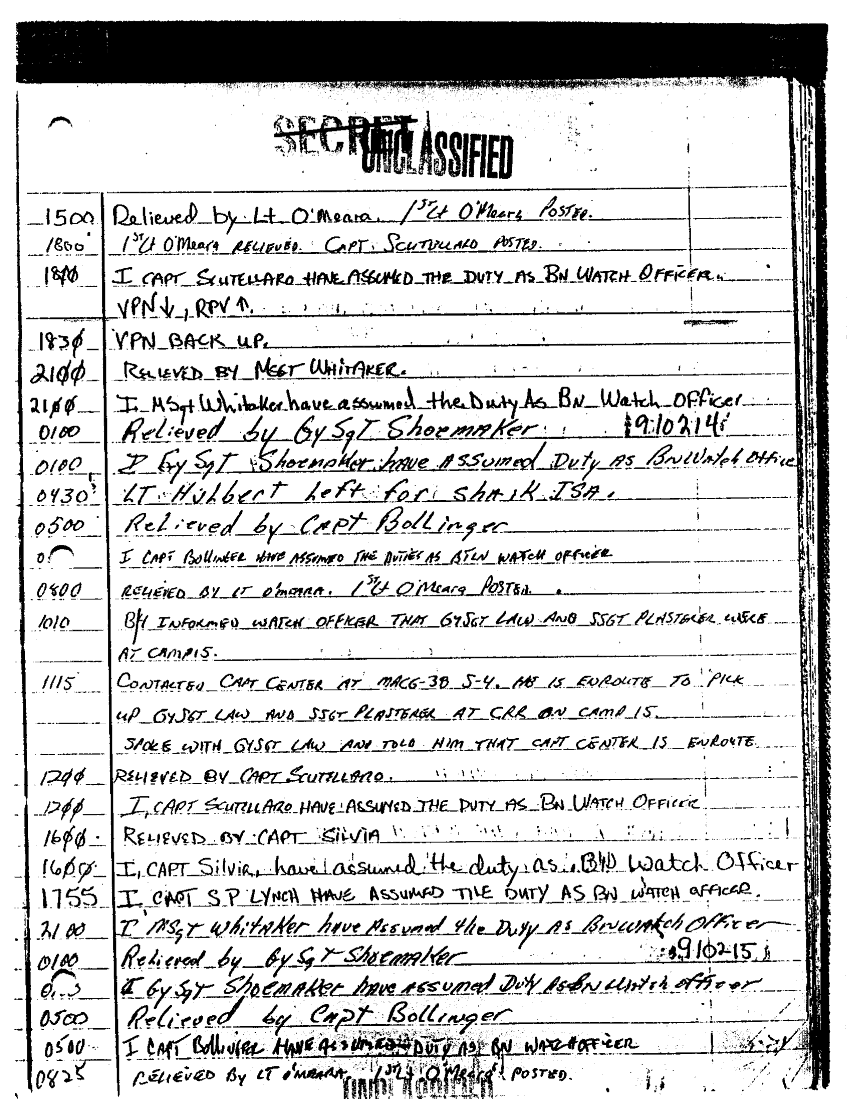 SECRET
UNCLASSIFIED
1500 Relieved by Lt O'Meara. 1st Lt O'Meara Posted.
1800 1st Lt O'Meara RELIEVED. CAPT. SCUTELLARO POSTED.
18ØØ I CAPT SCUTELLARO HAVE ASSUMED THE DUTY AS BN WATCH OFFICER.
VPN ↓, RPV ↑.
183Ø VPN BACK UP.
21ØØ RELIEVED BY MSGT WHITAKER.
21ØØ I MSgt Whitaker have assumed the Duty As BN Watch Officer
0100 Relieved by GySgT Shoemaker 910214
0100 I GySgT Shoemaker have ASSUMED Duty AS BN Watch Office
0430 LT. Hulbert left for shaik ISA.
0500 Relieved by CAPT Bollinger
I CAPT BOLLINGER HAVE ASSUMED THE DUTIES AS BTLN WATCH OFFICER
0800 RELIEVED BY LT O'MEARA. 1st Lt O'Meara POSTED.
1010 INFORMED WATCH OFFICER THAT GYSGT LAW AND SSGT PLASTERER WERE
AT CAMP 15.
1115 CONTACTED CAPT CENTER AT MACG-38 S-4. HE IS ENROUTE TO PICK
UP GYSGT LAW AND SSGT PLASTERER AT CRR ON CAMP 15.
SPOKE WITH GYSGT LAW AND TOLD HIM THAT CAPT CENTER IS ENROUTE.
12ØØ RELIEVED BY CAPT SCUTELLARO.
12ØØ I, CAPT SCUTELLARO HAVE ASSUMED THE DUTY AS BN WATCH OFFICER
16ØØ RELIEVED BY CAPT SILVIA
16ØØ I, CAPT Silvia, have assumed the duty as BN Watch Officer
1755 I, CAPT S.P LYNCH HAVE ASSUMED THE DUTY AS BN WATCH OFFICER.
2100 I MSgT Whitaker have Assumed the Duty As BN Watch Officer
0100 Relieved by GySgT Shoemaker 910215
I GySgT Shoemaker have assumed Duty As BN Watch officer
0500 Relieved by Capt Bollinger
0500 I CAPT BOLLINGER HAVE ASSUMED DUTY AS BN WATCH OFFICER
0825 RELIEVED BY LT O'MEARA. 1st Lt O'Meara POSTED.
UNCLASSIFIED